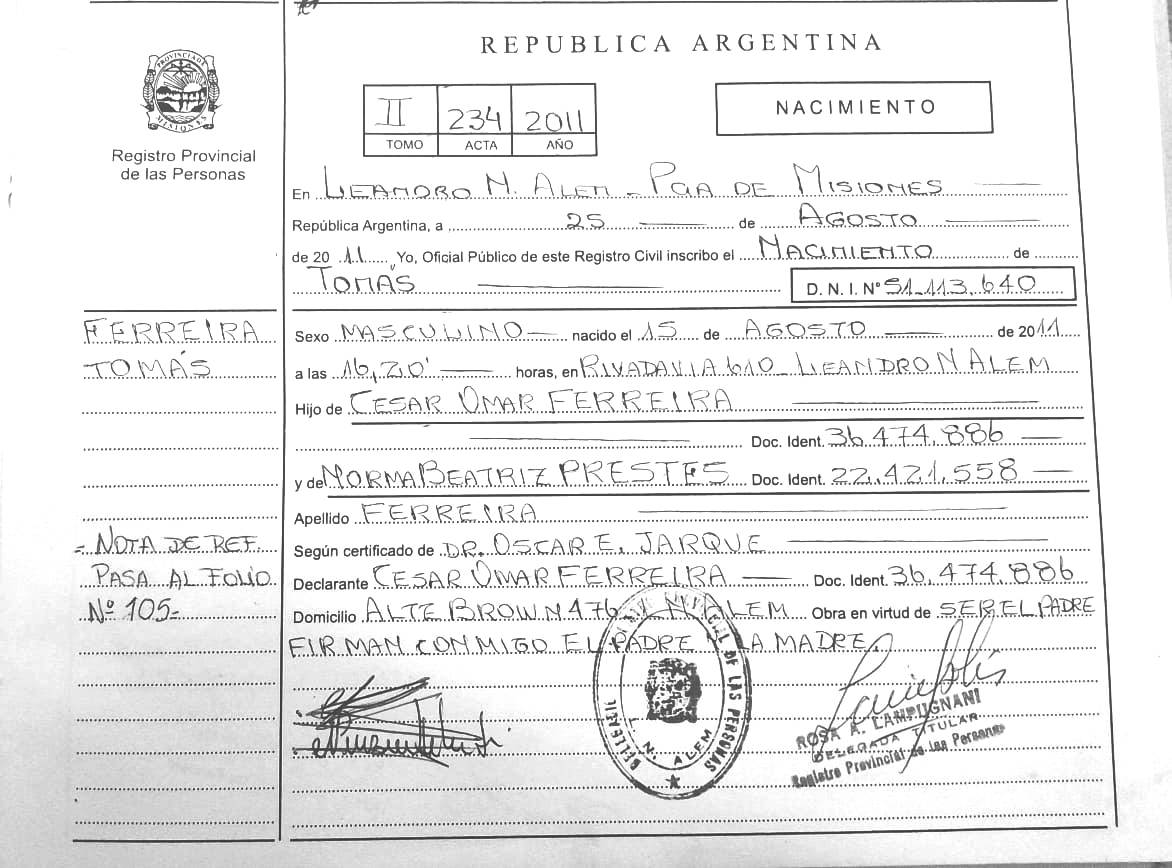 REPUBLICA ARGENTINA
PROVINCIA DE MISIONES
Registro Provincial
de las Personas
II 234 2011
TOMO ACTA AÑO
NACIMIENTO
En LEANDRO N. ALEM - PCIA DE MISIONES
República Argentina, a 25 de AGOSTO
de 20 11 Yo, Oficial Público de este Registro Civil inscribo el NACIMIENTO de
TOMÁS D. N. I. Nº 51.113.640
FERREIRA
TOMÁS
Sexo MASCULINO nacido el 15 de AGOSTO de 2011
a las 16,20' horas, en RIVADAVIA 610 - LEANDRO N ALEM
Hijo de CESAR OMAR FERREIRA
Doc. Ident. 36.474.886
y de NORMA BEATRIZ PRESTES Doc. Ident. 22.421.558
Apellido FERREIRA
- NOTA DE REF.
PASA AL FOLIO
Nº 105-
Según certificado de DR. OSCAR E. JARQUE
Declarante CESAR OMAR FERREIRA Doc. Ident. 36.474.886
Domicilio ALTE BROWN 476 L N ALEM Obra en virtud de SER EL PADRE
FIRMAN CONMIGO EL PADRE Y LA MADRE.
PROVINCIAL DE LAS PERSONAS
L. N. ALEM
ROSA A. LAMPUGNANI
DELEGADA TITULAR
Registro Provincial de las Personas